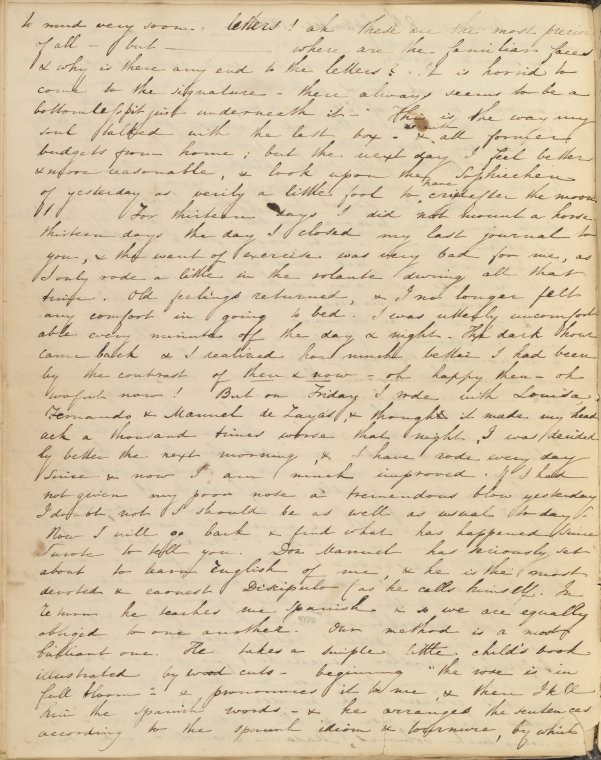 to mind very soon. Letters! ah these are the most precious
of all – but – ——— where are the familiar faces
& why is there any end to the letters? It is horrid to
come to the signature – there always seems to be a
bottomless pit just underneath it – This is the way my
soul talked with the last box – & with all former
budgets from home; but the next day I feel better
& more reasonable, & look upon the Sophiechen
of yesterday as verily a little fool to have cried after the moon
For thirteen days I did not mount a horse
thirteen days the day I closed my last journal to
you, & the want of exercise was very bad for me, as
I only rode a little in the volante during all that
time. Old feelings returned, & I no longer felt
any comfort in going to bed. I was utterly uncomfort
able every minute of the day & night. The dark hour
came back & I realized how much better I had been
by the contrast of then & now – oh happy then – oh
woful now! But on Friday I rode with Louisa
Fernando & Manuel de Layas, & thought it made my head
ach a thousand times worse that night, I was decided
ly better the next morning, & I have rode every day
since & now I am much improved. If I had
not given my poor nose a tremendous blow yesterday
I doubt not I should be as well as usual to day –
Now I will go back & find what has happened since
I wrote to tell you. Don Manuel has seriously set
about to learn English of me, & he is the most
devoted & earnest Discipulo (as he calls himself). In
return he teaches me Spanish & so we are equally
obliged to one another. Our method is a most
brilliant one. He takes a simple little child's book
illustrated by wood cuts – beginning "the rose is in
full bloom" – & pronounces it to me, & then I tell
him the spanish words – & he arranges the sentences
according to the spanish idiom & tournure, by which